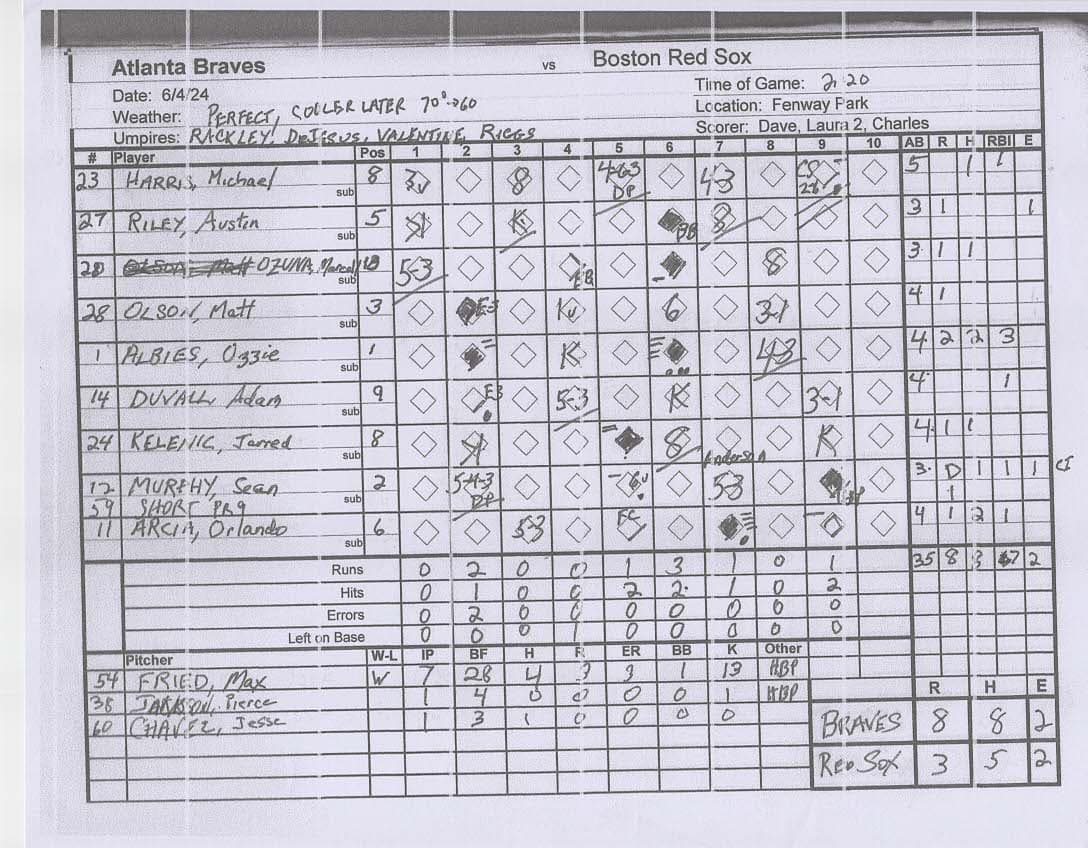 Atlanta Braves vs Boston Red Sox
Date: 6/4/24 Time of Game: 2:20
Weather: PERFECT, COOLER LATER 70°→60 Location: Fenway Park
Umpires: RACKLEY, DeJesus, VALENTINE, RIGGS Scorer: Dave, Laura 2, Charles
# Player Pos 1 2 3 4 5 6 7 8 9 10 AB R H RBI E
23 HARRIS, Michael sub 8 3U 8 4-6-3 DP 4-3 CS 26 5 1 1
27 RILEY, Austin sub 5 K K BB 8 3 1 1
20 OZUNA, Marcell sub 5-3 BB 8 3 1 1
28 OLSON, Matt sub 3 E-3 Kc 6 3-1 4 1
1 ALBIES, Ozzie sub K 4-3 4 2 2 3
14 DUVALL, Adam sub 9 E3 5-3 K 3-1 4 1
24 KELENIC, Jarred sub 8 K 8 K 4 1 1
Anderson
12 MURPHY, Sean sub 2 5-4-3 DP 6 53 HBP 3 0 1 1 1 CI
59 SHORT PR9 1
11 ARCIA, Orlando sub 6 53 FC 4 1 2 1
Runs 0 2 0 0 1 3 1 0 1 35 8 8 7 2
Hits 0 1 0 0 2 2 1 0 2
Errors 0 2 0 0 0 0 0 0 0
Left on Base 0 0 0 1 0 0 0 0 0
Pitcher W-L IP BF H R ER BB K Other
54 FRIED, Max W 7 28 4 3 3 1 13 HBP
38 JACKSON, Pierce 1 4 0 0 0 0 1 HBP
60 CHAVEZ, Jesse 1 3 1 0 0 0 0
R H E
BRAVES 8 8 2
Red Sox 3 5 2